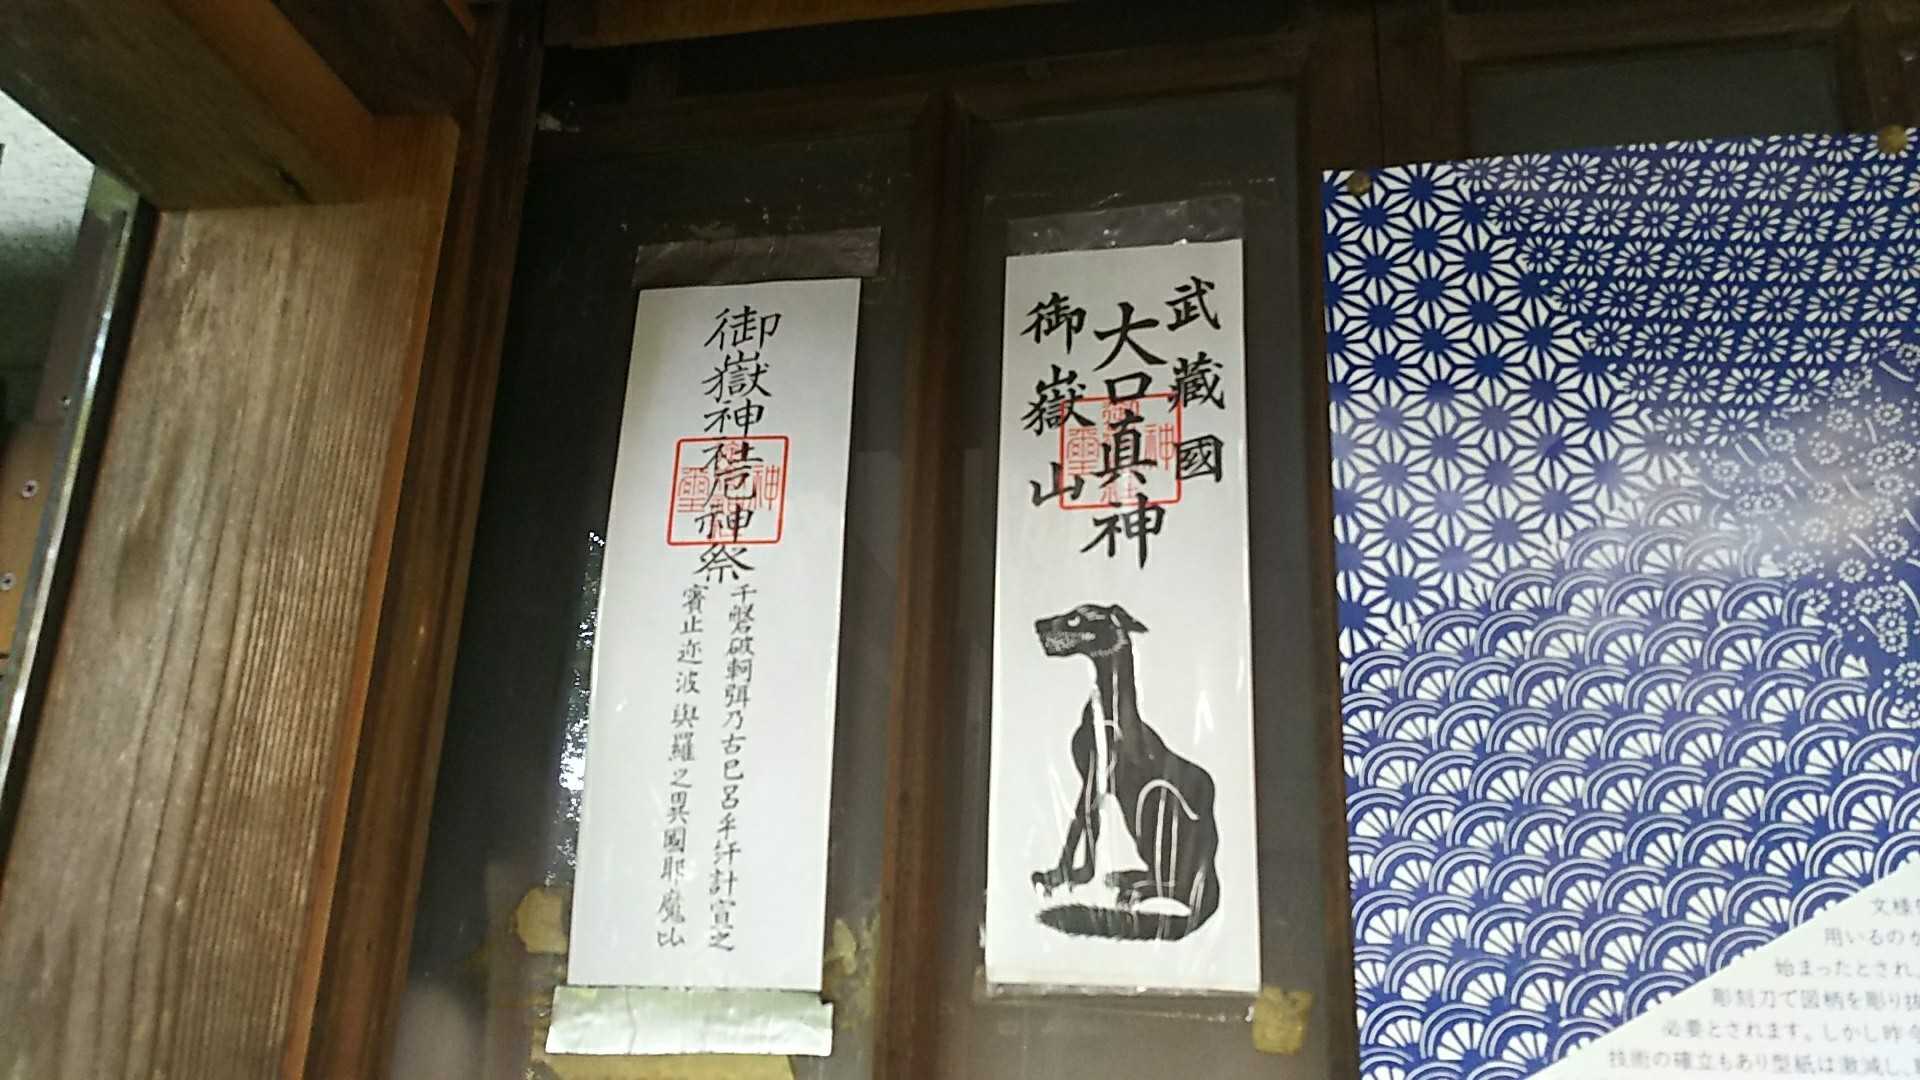 武藏國
大口真神
御嶽山
御嶽神社厄神祭
千磐破軻弭乃古巳呂乎纡計宣之
賽止迩波與羅之異國耶魔比
文様
用いるのが
始まったとされ、
彫刻刀で図柄を彫り抜
必要とされます。しかし昨今
技術の確立もあり型紙は激減し、